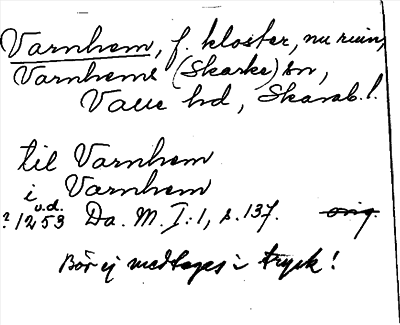 Varnhem, f. kloster, nu ruin,
Varnhems (Skarke) sn,
Valle hd, Skarab. l.
til Varnhem
i Varnhem
u.d.
? 1253 Da. M. I:1, s. 137. orig.
Bör ej medtages i tryck!